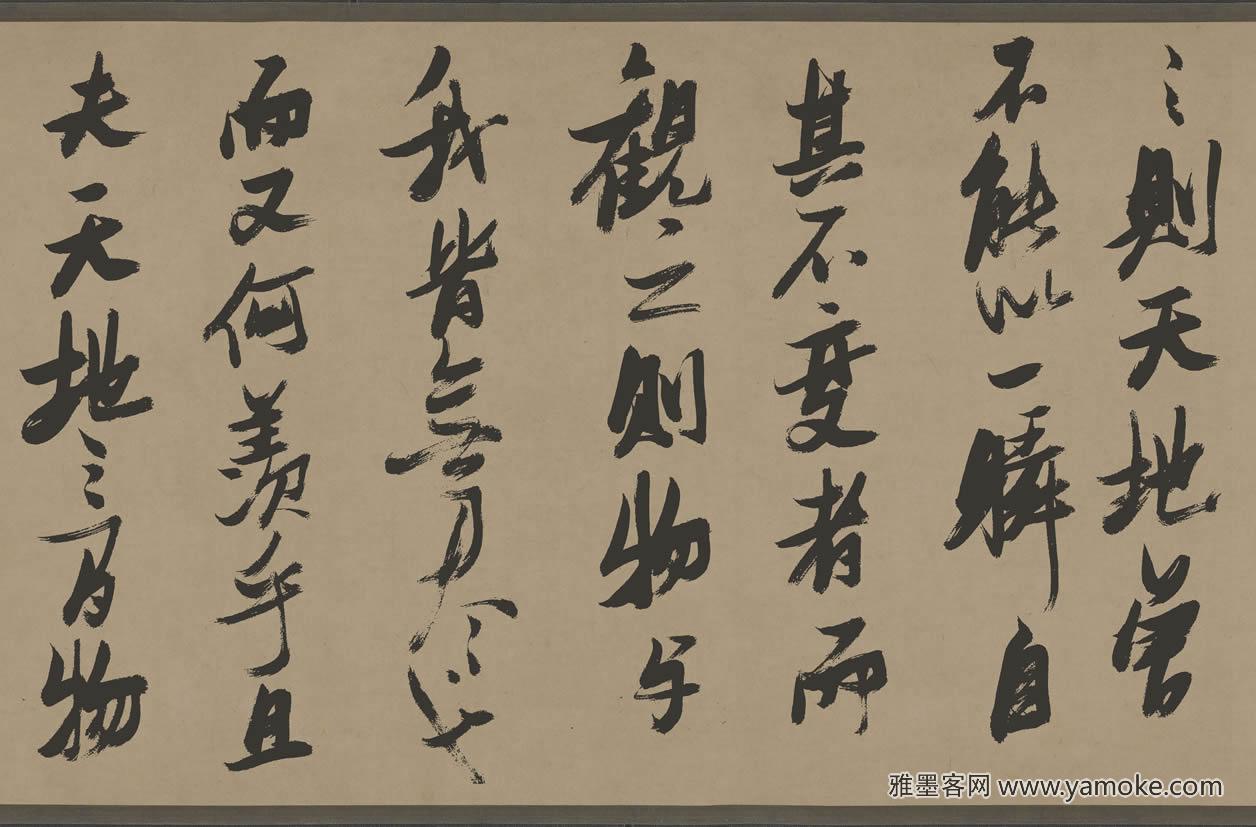 之則天地曾
不能以一瞬自
其不變者而
觀之則物与
我皆無尽也
而又何羨乎且
夫天地之間物
雅墨客网 www.yamoke.com